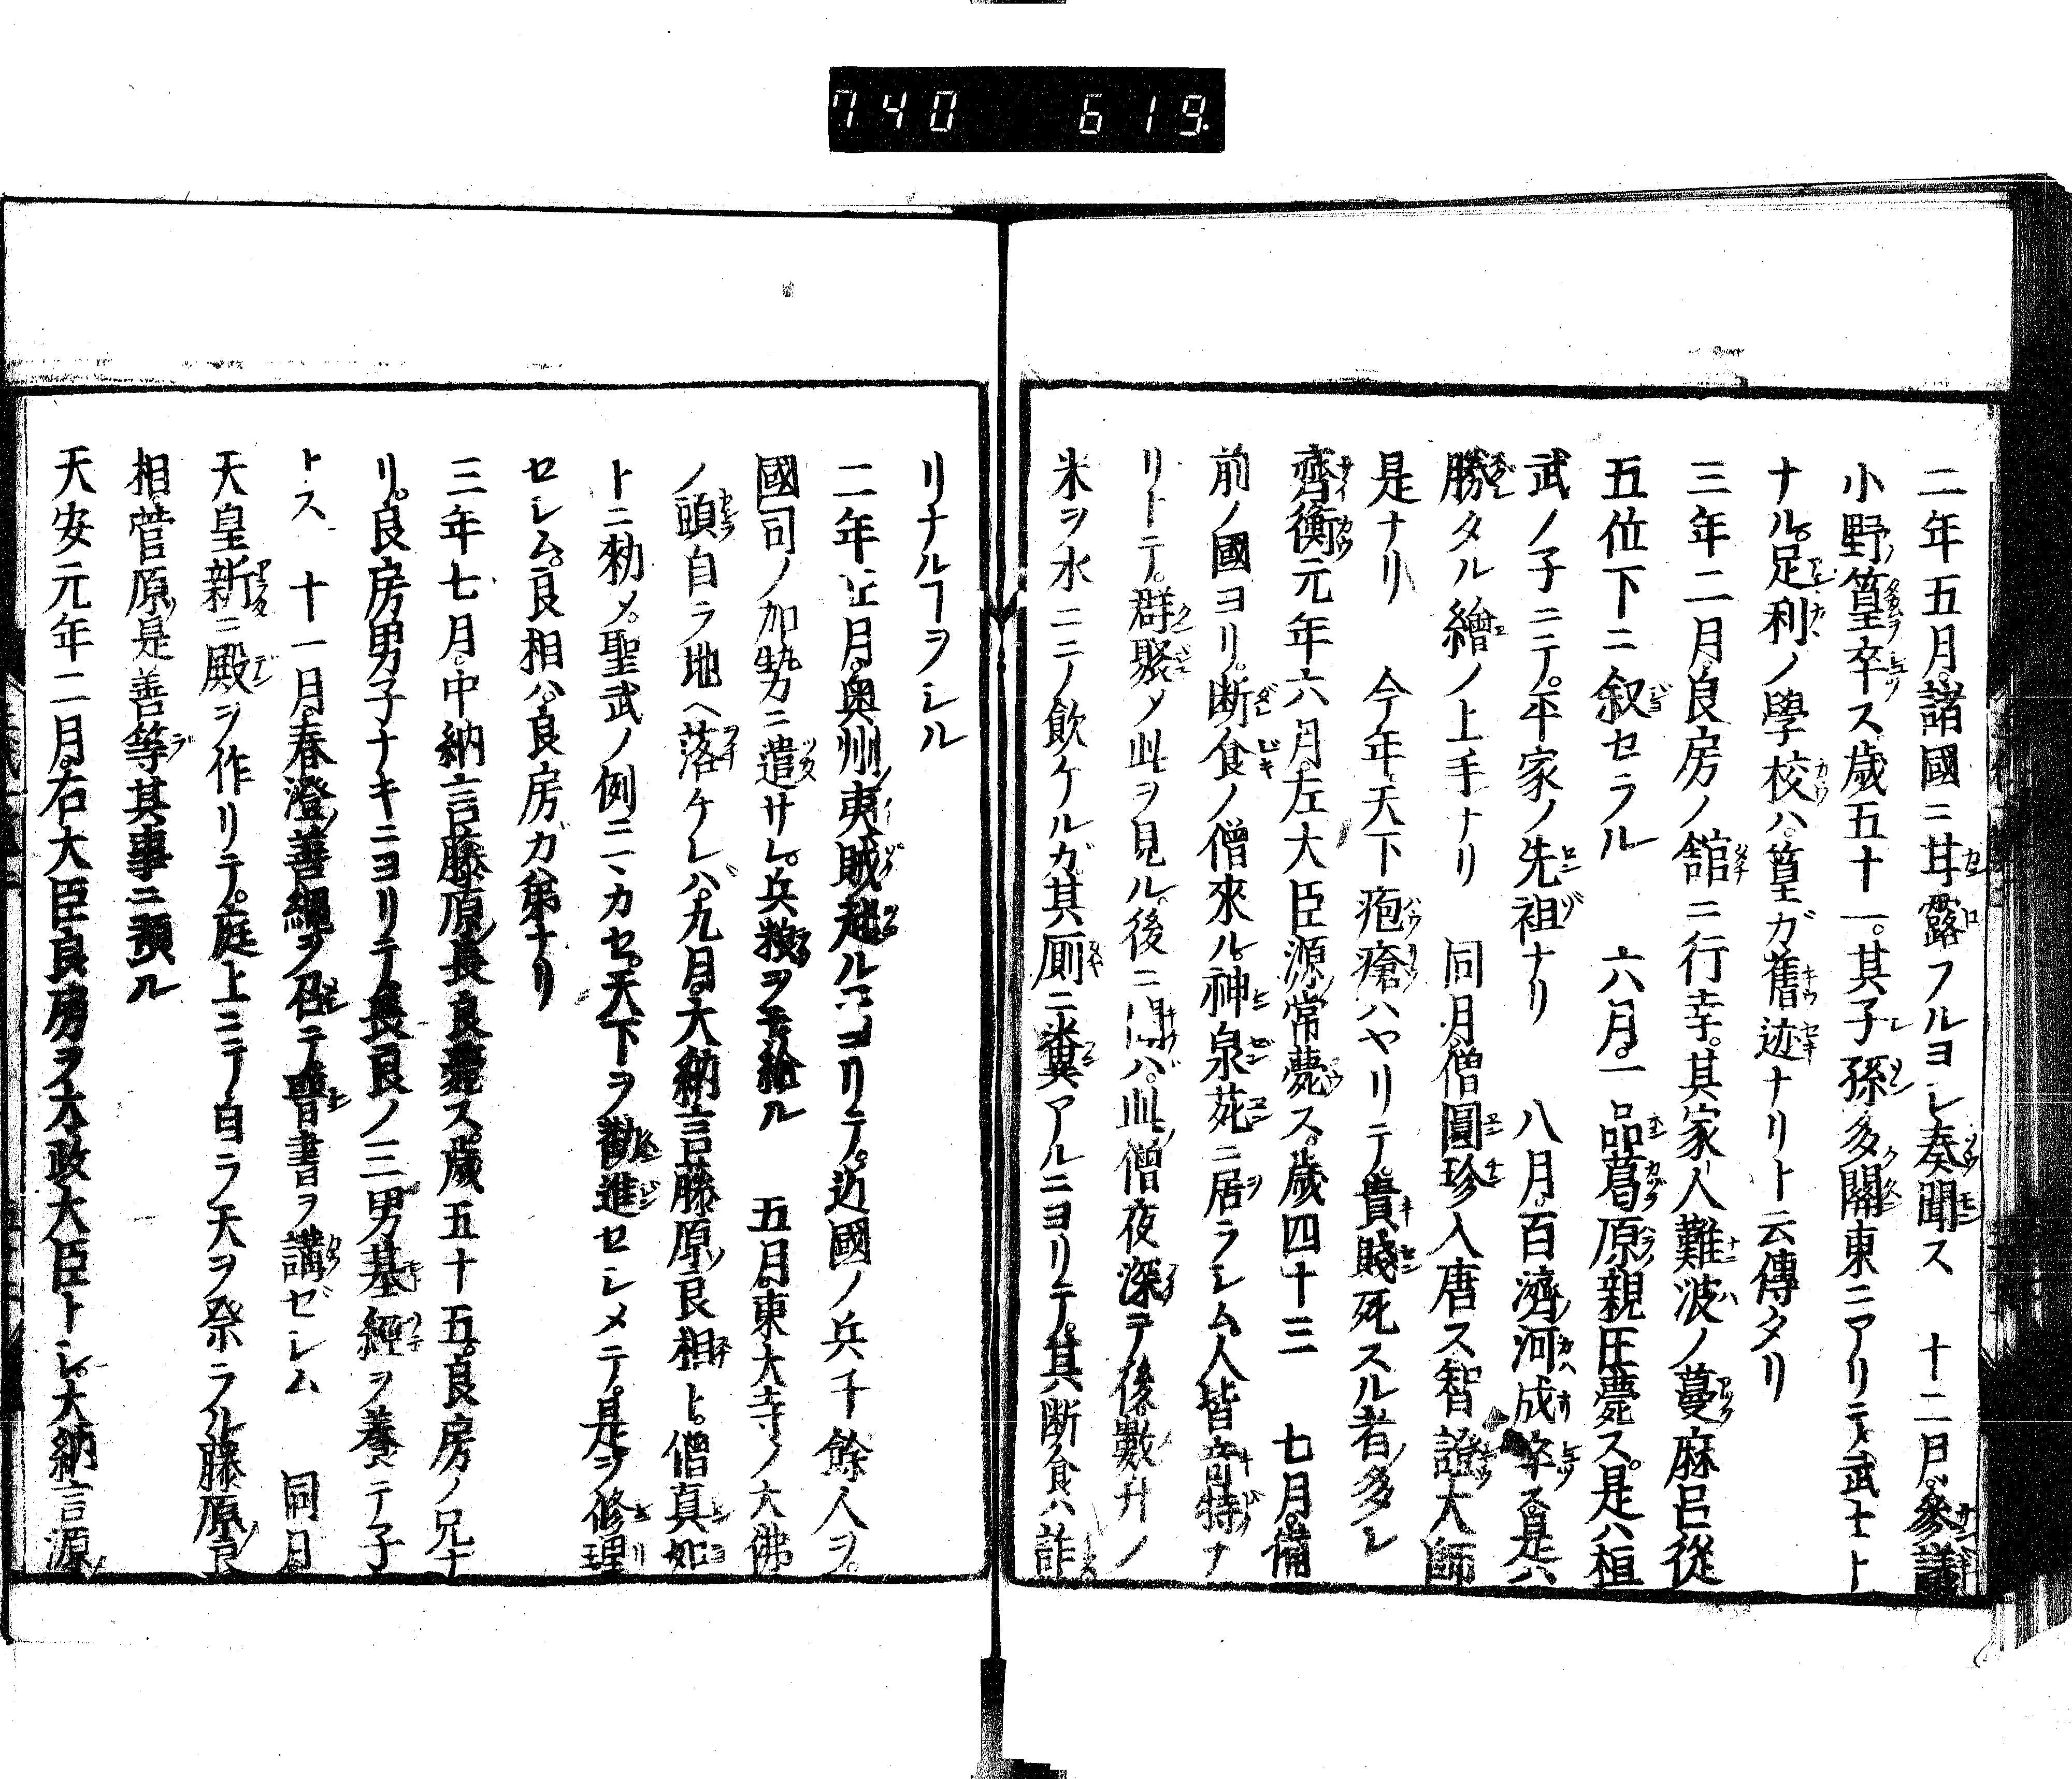 740 619.
二年五月。諸國ニ甘露フルヨシ奏聞ス 十二月。參議
小野ノ篁卒ス歲五十一。其子孫多ク關東ニアリテ武士ト
ナル。足利ノ學校ハ。篁ガ舊迹ナリト云傳タリ
三年二月。良房ノ舘ニ行幸。其家人難波ノ蔓麻呂從
五位下ニ叙セラル 六月。一品葛原親王薨ス。是ハ桓
武ノ子ニテ。平家ノ先祖ナリ 八月。百濟ノ河成卒ス。是ハ
勝タル繪ノ上手ナリ 同月。僧圓珍入唐ス智證大師
是ナリ 今年天下疱瘡ハヤリテ。貴賤死スル者多シ
齊衡元年六月。左大臣源ノ常薨ス。歲四十三 七月。備
前ノ國ヨリ。断食ノ僧來ル。神泉苑ニ居ラシム。人皆奇特ナ
リトテ。群聚メ此ヲ見ル。後ニ聞ハ。此僧夜深テ後。數升ノ
米ヲ水ニテノ飲ケルガ。其厠ニ糞アルニヨリテ。其断食ハ詐
リナルヿヲシル
二年正月。奥州ノ夷賊起ルニヨリテ。近國ノ兵千餘人ヲ。
國司ノ加勢ニ遣サレ。兵粮ヲモ給ル 五月。東大寺ノ大佛
ノ頭自ラ地ヘ落ケレバ。九月。大納言藤原ノ良相ト。僧真如
トニ勅メ。聖武ノ例ニマカセ。天下ヲ勸進セシメテ。是ヲ修理
セシム。良相ハ。良房ガ弟ナリ
三年七月。中納言藤原ノ長良薨ス。歲五十五。良房ノ兄ナ
リ。良房男子ナキニヨリテ。長良ノ三男基經ヲ養テ子
トス 十一月。春澄ノ善繩ヲ召テ。晋書ヲ講ゼシム 同月。
天皇新ニ殿ヲ作リテ。庭上ニテ自ラ天ヲ祭ラル。藤原ノ良
相。菅原ノ是善等其事ニ預ル
天安元年二月。右大臣良房ヲ太政大臣トシ。大納言源ノ